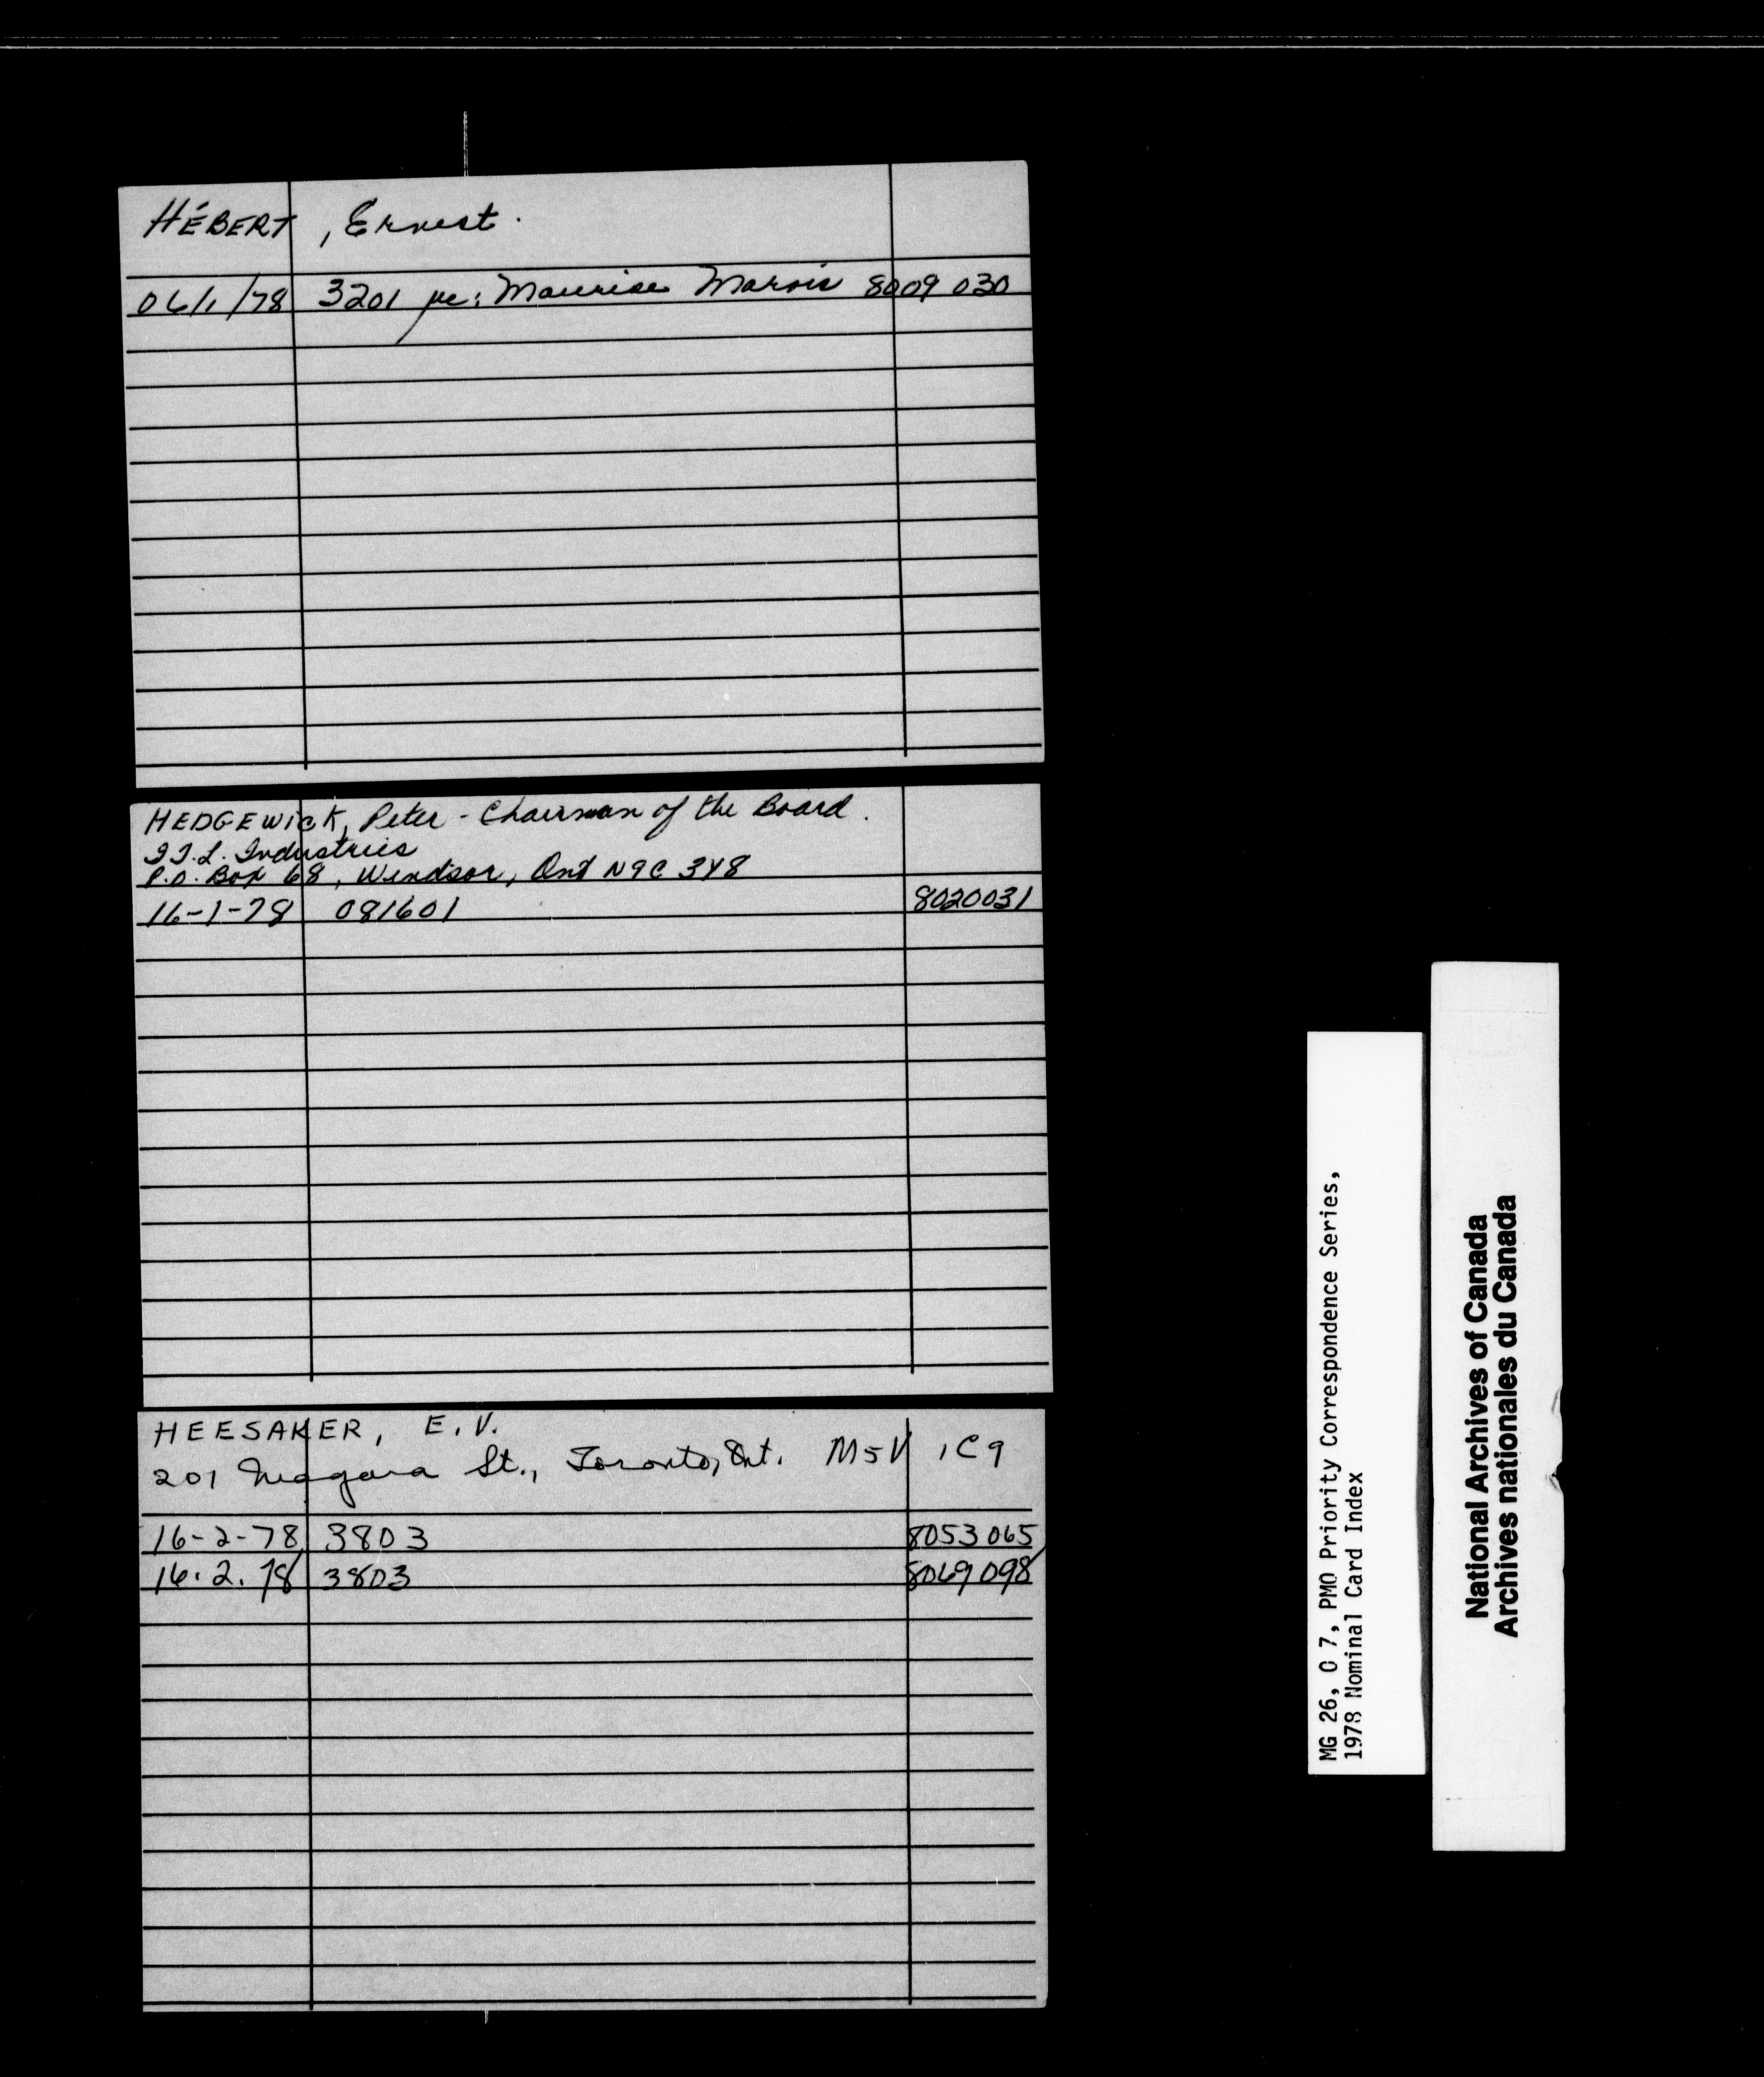 HÉBERT, Ernest.
06/1/78 3201 re: Maurice Marois 8009 030
HEDGEWICK, Peter - Chairman of the Board.
I.T.L. Industries
P.O. Box 68, Windsor, Ont N9C 3Y8
16-1-78 081601 8020031
HEESAKER, E.V.
201 Niagara St., Toronto, Ont. M5V 1C9
16-2-78 3803 8053065
16.2.78 3803 8069098
MG 26, O 7, PMO Priority Correspondence Series,
1978 Nominal Card Index
National Archives of Canada
Archives nationales du Canada